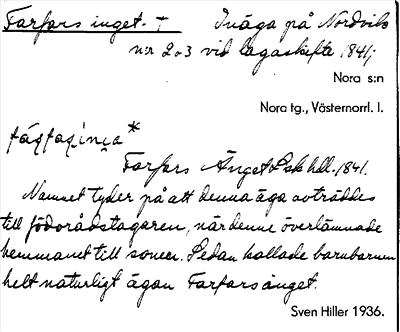 Farfars inget. + Inäga på Nordvik
n:r 2o3 vid lagaskifte 1841;
Nora s:n
Nora tg., Västernorrl. l.
fáɋfaɋiŋa*
Farfars Änget Lsk hdl. 1841.
Namnet tyder på att denna äga avträddes
till födorådstagaren, när denne överlämnade
hemmanet till sonen. Sedan kallade barnbarnen
helt naturligt ägan Farfarsänget.
Sven Hiller 1936.